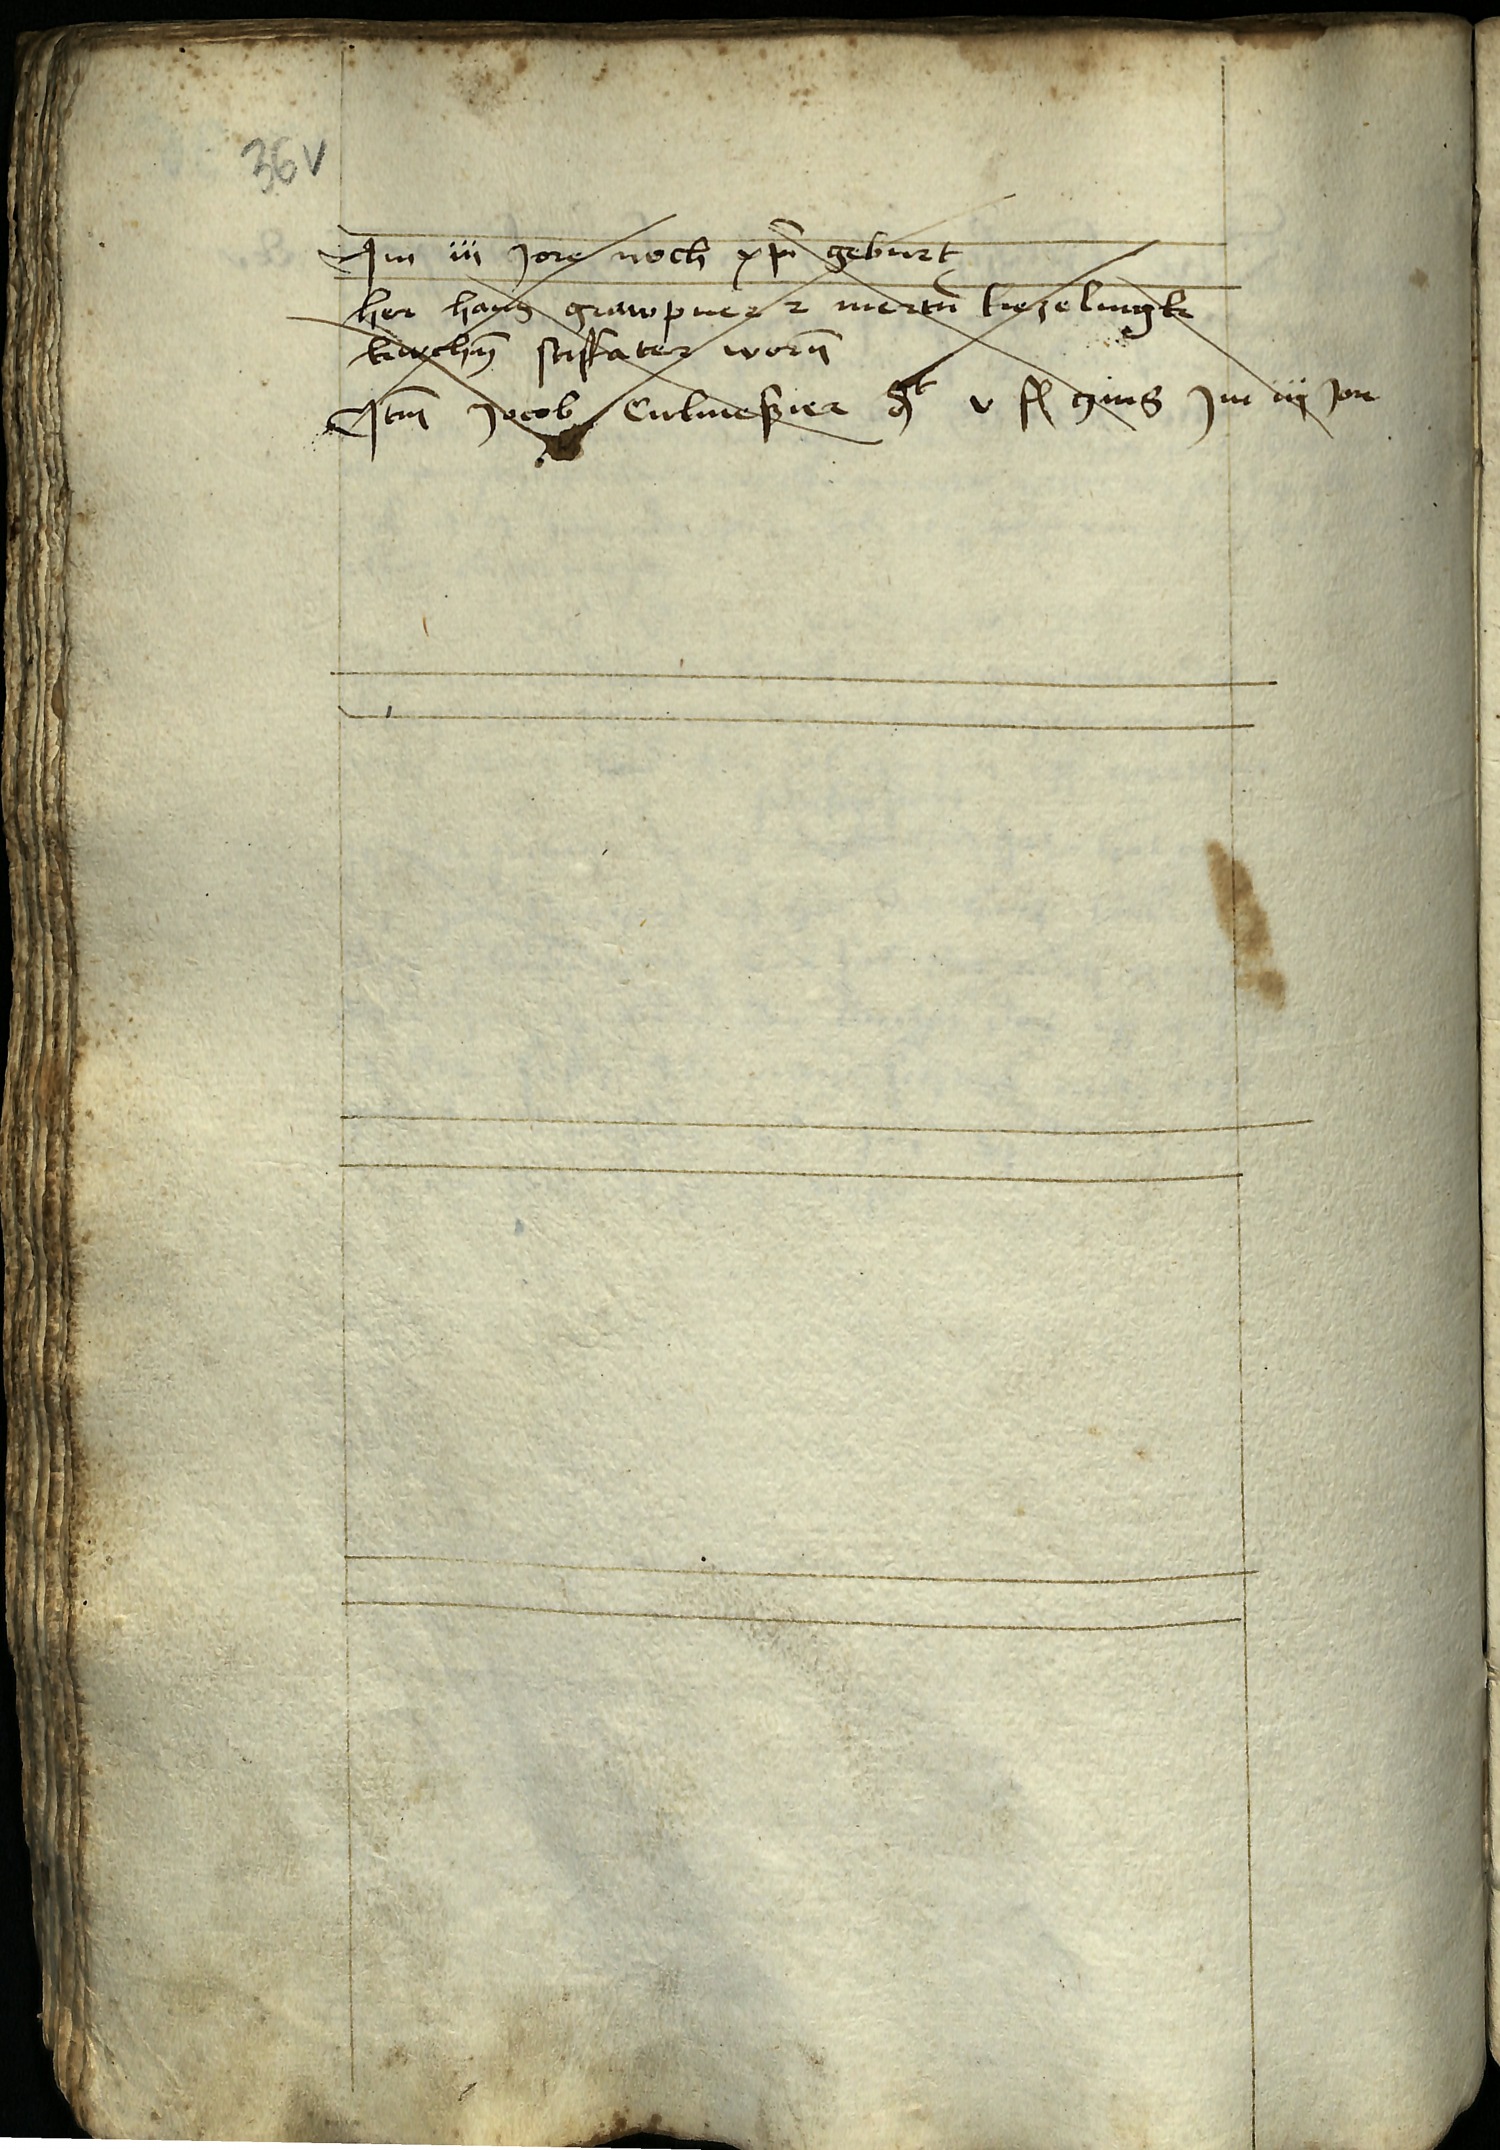 36v
Am iij Jore noch xpi geburt
her hans grawpner z mertñ kezelingk
kirchñ stiffater worñ
Itm̃ Jocob Culmeßner dt v fl czins Im iij Jor